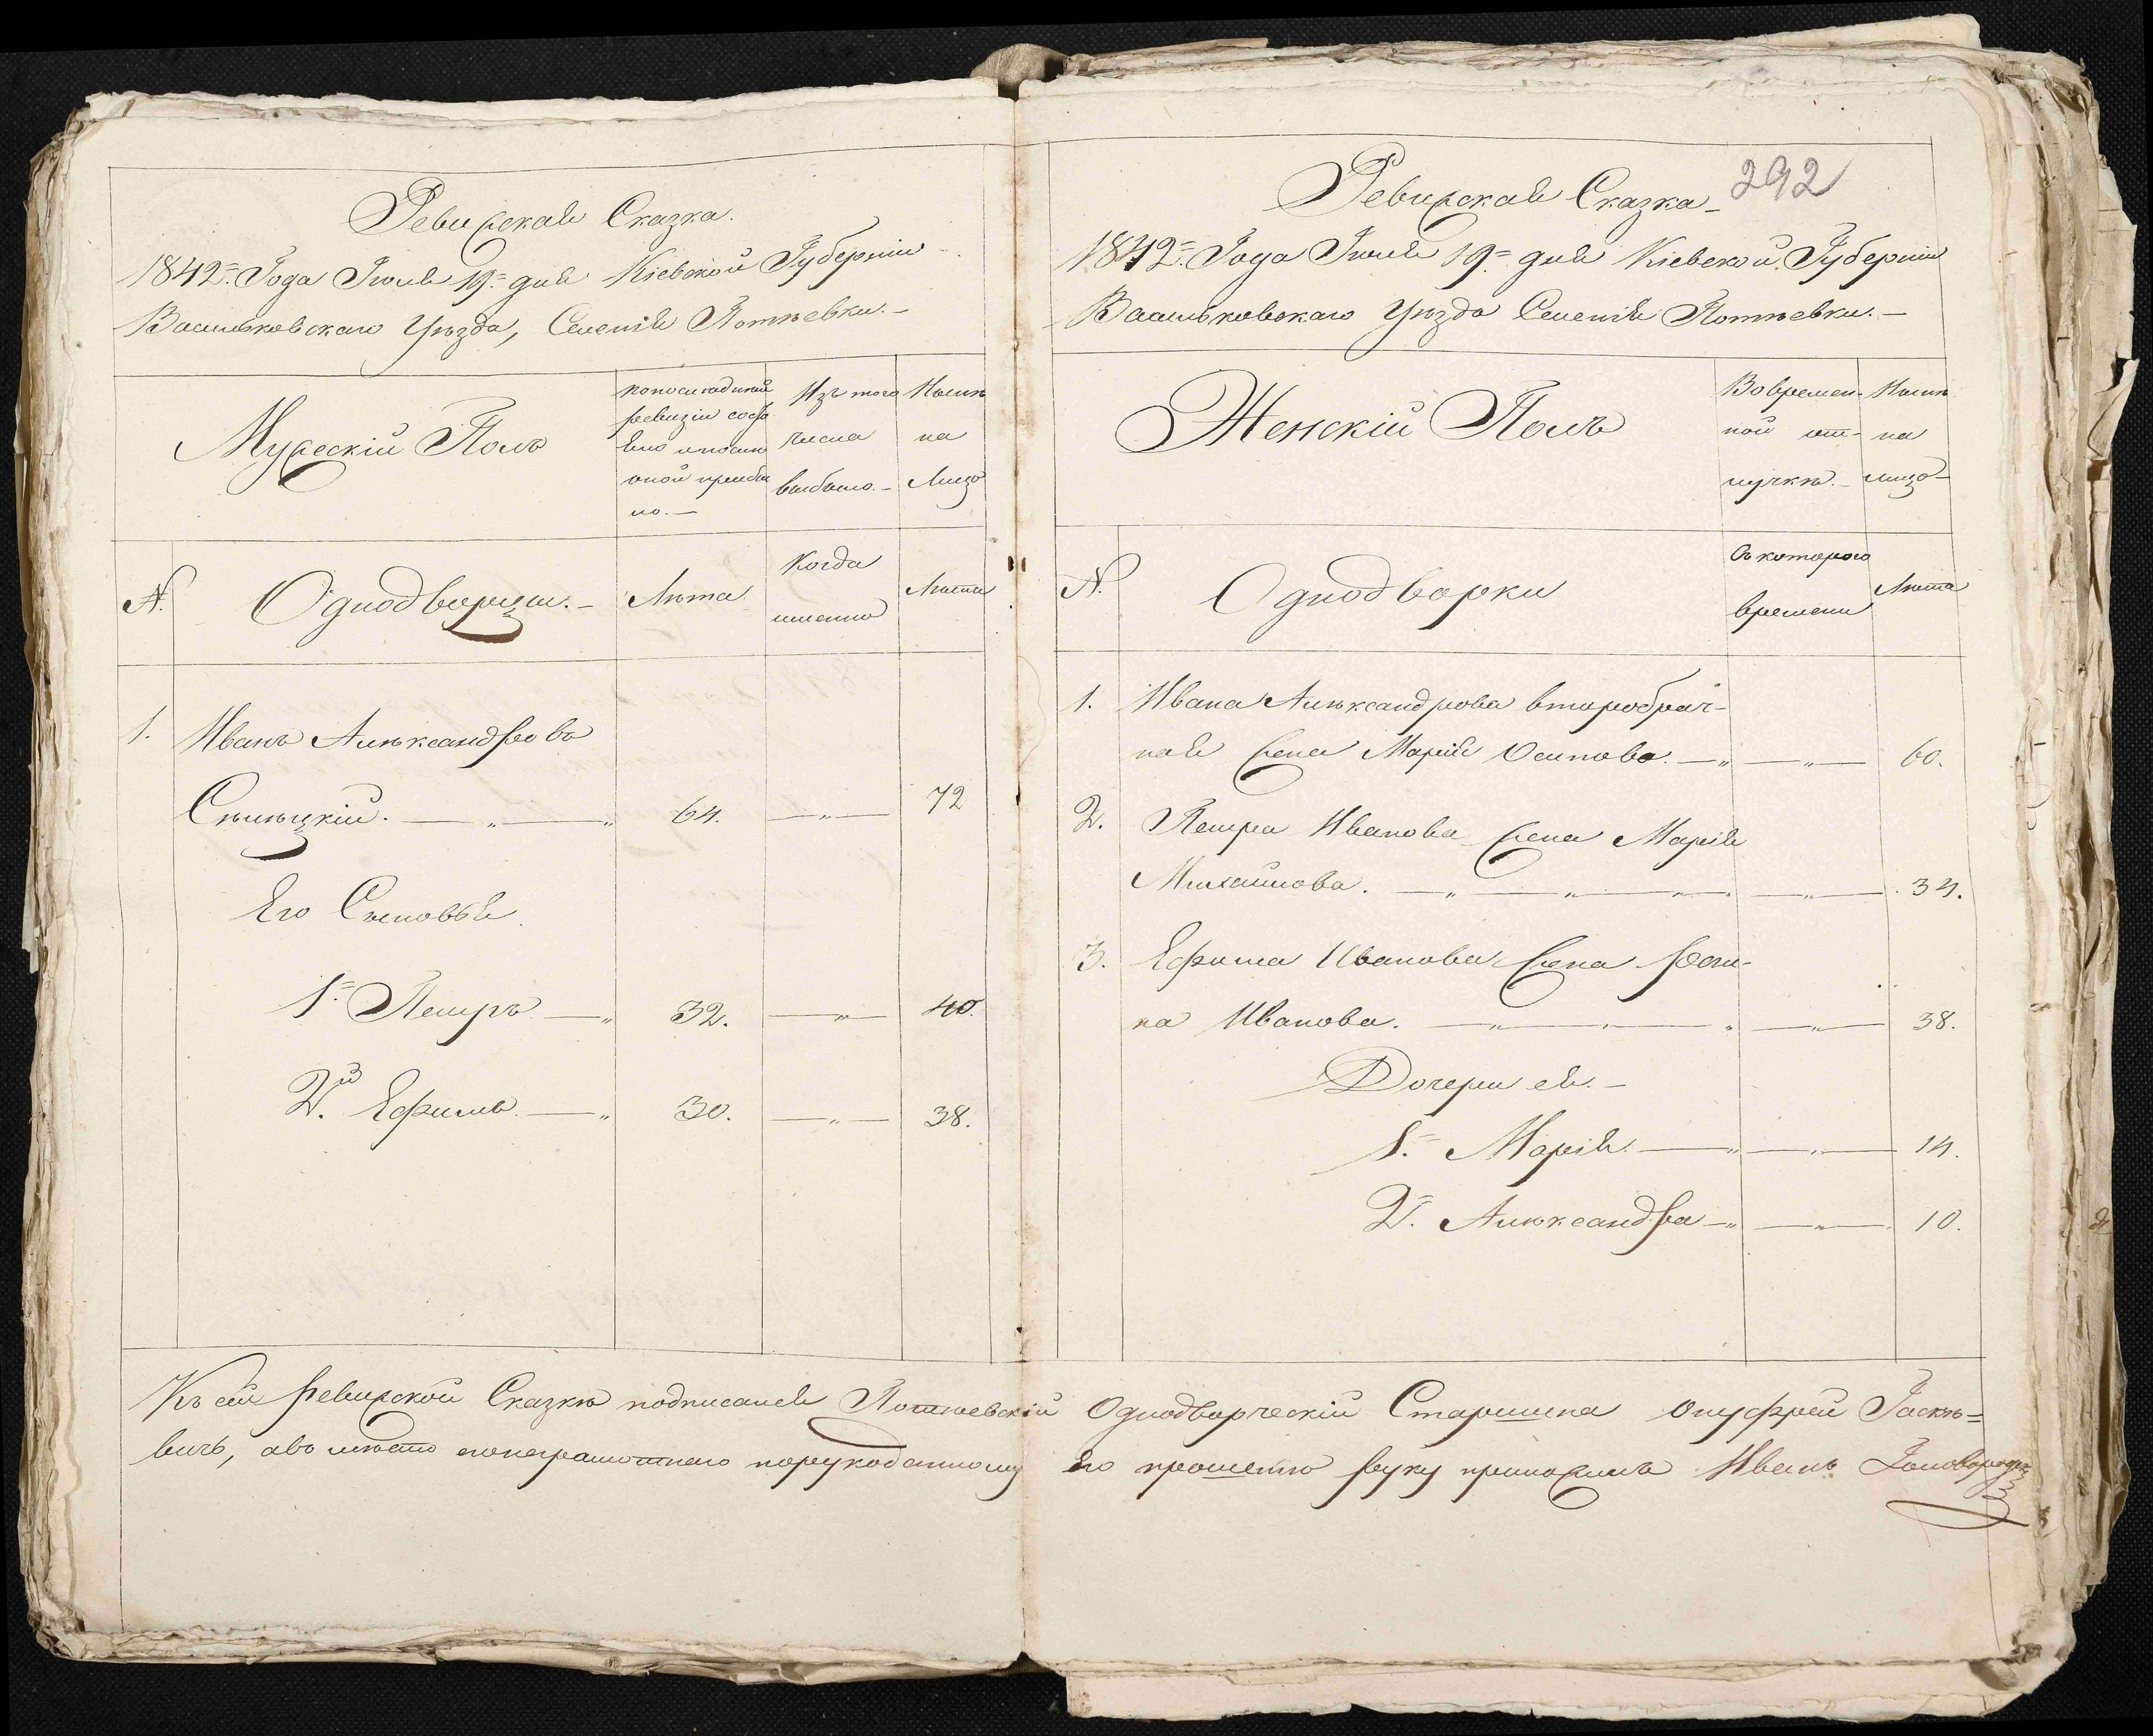 Ревизская Сказка.
1842= Года Июля 19= дня Кіевской Губерніи
Васильковскаго Уѣзда, Селенія Потіевки.-
Мужескій Полъ
по последней
ревизіи состо
яло и после
оной прибы
ло.-
Изъ того
числа
выбыло.-
Нынѣ
на
Лицо
№.
Однодворцы.-
Лѣта
Когда
именно
Лѣта
1. Иванъ Алѣксандровъ
64. 72
Его Сыновья.
1= Петръ 32. 40.
2й Ефимъ 30. 38.
292
Ревизская Сказка-
1842= Года Июля 19= дня Кіевской Губерніи
Васильковскаго Уѣзда Селенія Потіевки.-
Женскій Полъ
Во времен-
ной от-
лучкѣ.-
Нынѣ
на
лицо-
№.
Однодворки
Съ котораго
времени
Лѣта
1. Ивана Алѣксандрова второбрач-
ная жена Марія Осипова. 60.
2. Петра Иванова жена Марія
Михайлова. 34.
3. Ефима Иванова жена
Иванова. 38.
Дочери ея.-
1= Марія. 14.
2= Алѣксандра 10.
Къ сей ревизской Сказкѣ подписался Однодворческій Старшина Онуфрей
вичъ, авместо его неграмотнаго порукоданному Его прошенію руку приложилъ Иванъ